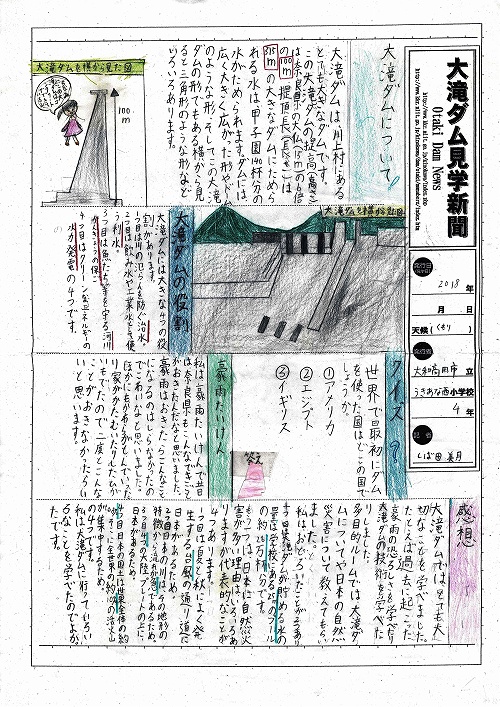 大滝ダム見学新聞
Otaki Dam News
発行日
2018年
月 日
天候（くもり）
発行者
大和高田市 立
うきあな西小学校
4年
記者
しば田 美月
大滝ダムについて！
大滝ダムは、川上村にある
とても大きなダムです。
この大滝ダムの提高（高さ）
は奈良県の大仏（15m）の6倍
の100m 提頂長（長さ）は
315m の大きなダムにためら
れる水は甲子園140杯分の
水がためられます。ダムには、
広く大きく広がった形やドーム
のような形、そしてこの大滝
ダムの形でもある横から見
ると三角形のような形など
いろいろあります。
大滝ダムを横から見た図
100m
大滝ダムの役割
大滝ダムには大きな4つの役
割があります。
1つ目は川のはんらんを防ぐ治水。
2つ目は飲み水や工業水として使
う利水。
3つ目は魚たち等を守る河川
かんきょうの保ご
4つ目はクリーンなエネルギーの
水力発電の4つです。
クイズ？
世界で最初にダム
を使った国はどこの国で
しょうか。
①アメリカ
②エジプト
③イギリス
答え
豪雨たいけん
私は豪雨たいけんで昔
は奈良県もこんなできごと
がおきたんだなと思いました。
豪雨はおきたらこんなこと
になるのはしらなかったの
でこわいなと思いました。
ほかにも木がたおれていった
り家がかたむいたりしてとてもこわ
いもでしたので二度とこんな
ことがおきなかったらい
いと思います。
感想
大滝ダムでは、とても大
切なことを学べました。
たとえば過去に起こった
豪雨の恐ろしさを学べたり
大滝ダムの技術を学べた
りしました。
多目的ルームでは大滝ダ
ムについてや日本の自然
災害について教えてもらい
ました。
私はおどろいたことが2つあり
ます。
量は学校にある25mのプール
の約28万杯分です。
もう1つは日本に自然災
害が多い理由はいろいろあ
りますが代表的なことが
4つあります。
1つ目は夏と秋によく発
生する台風の通り道に
日本があるため。
2つ目日本の川と地形の
特徴が急であるため。
3つ目4つの大陸プレートの上に、
日本があるため。
4つ目日本の国土は世界全体の約
が集中するため。
の4つです。
私は大滝ダムに行っていろい
ろなことを学べたのでよかった